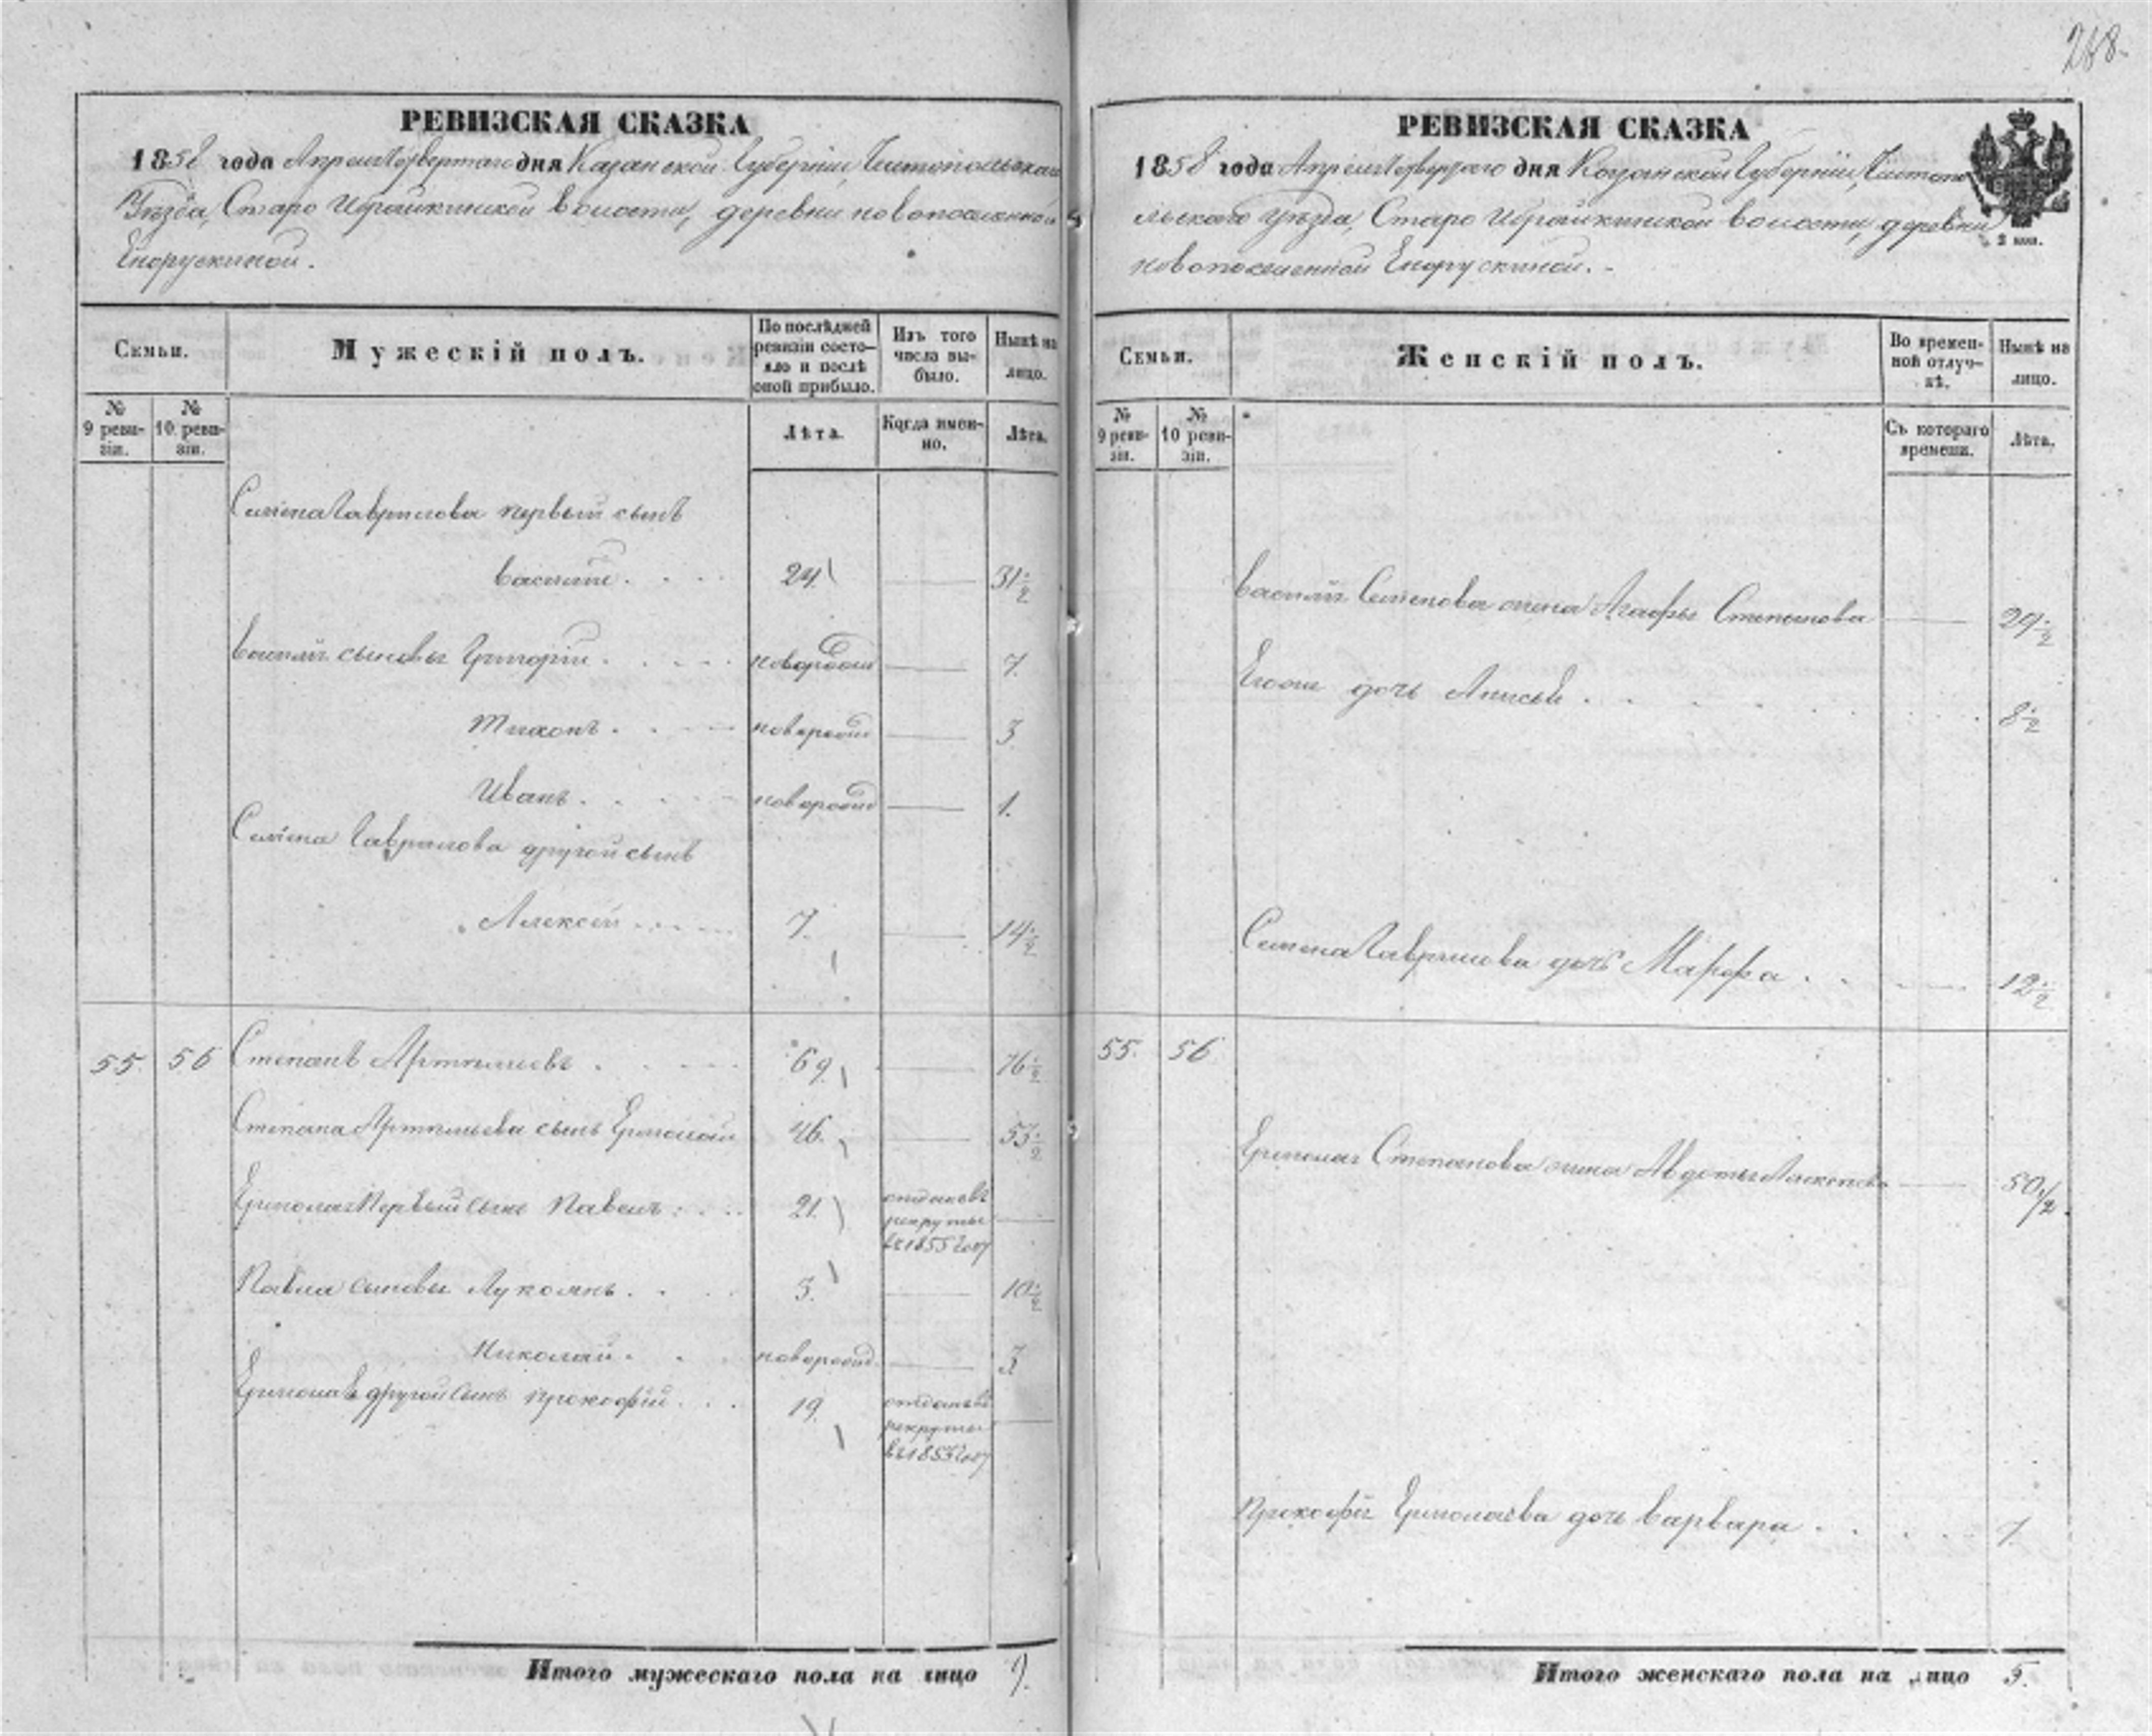 268.
РЕВИЗСКАЯ СКАЗКА
1858 года Апреля Четвертаго дня Казанской Губерніи, Чистопольскаго
Уѣзда, Старо Ибрайкинской волости, деревни новопоселенной
Енорускиной.
Семьи.
Мужескій полъ.
По послѣдней ревизіи состояло и послѣ оной прибыло.
Изъ того числа выбыло.
Нынѣ на лицо.
№ 9 ревизіи.
№ 10 ревизіи.
Лѣта.
Когда именно.
Лѣта.
Семена Гаврилова первый сынъ
Василій . . . . 24. 31 1/2
Василія сыновья Григорій . . . . новорожд 7.
Тихонъ . . . новорожд 3
Иванъ . . . новорожд 1.
Семена Гаврилова другой сынъ
Алексей . . . . . 7. 14 1/2
55. 56 Степанъ Артемьевъ . . . . 69. 76 1/2
Степана Артемьева сынъ Ермолай 46. 53 1/2
Ермолая Первый сынъ Павелъ . . . 21. отданъ въ рекруты въ 1855 году
Павла сыновья Лукоянъ . . . 3. 10 1/2
Николай . . . новорожд 3
Ермолая другой сынъ Прокофій . . . 19. отданъ въ рекруты въ 1853 году
Итого мужескаго пола на лицо 9.
РЕВИЗСКАЯ СКАЗКА
1858 года Апреля Четвертаго дня Казанской Губерніи, Чистопо
льскаго уѣзда, Старо Ибрайкинской волости, деревни
новопоселенной Енорускиной. -
3 коп.
Семьи.
Женскій полъ.
Во временной отлучкѣ.
Нынѣ на лицо.
№ 9 ревизіи.
№ 10 ревизіи.
Съ котораго времени.
Лѣта.
Василія Семенова жена Агафья Степанова 29 1/2
Егоже дочь Анисья . . . . . 8 1/2
Семена Гаврилова дочь Марфа . . . 12 1/2
55. 56
Ермолая Степанова жена Авдотья 50 1/2.
Прокофія Ермолаева дочь Варвара . . . . . 7.
Итого женскаго пола на лицо 5.